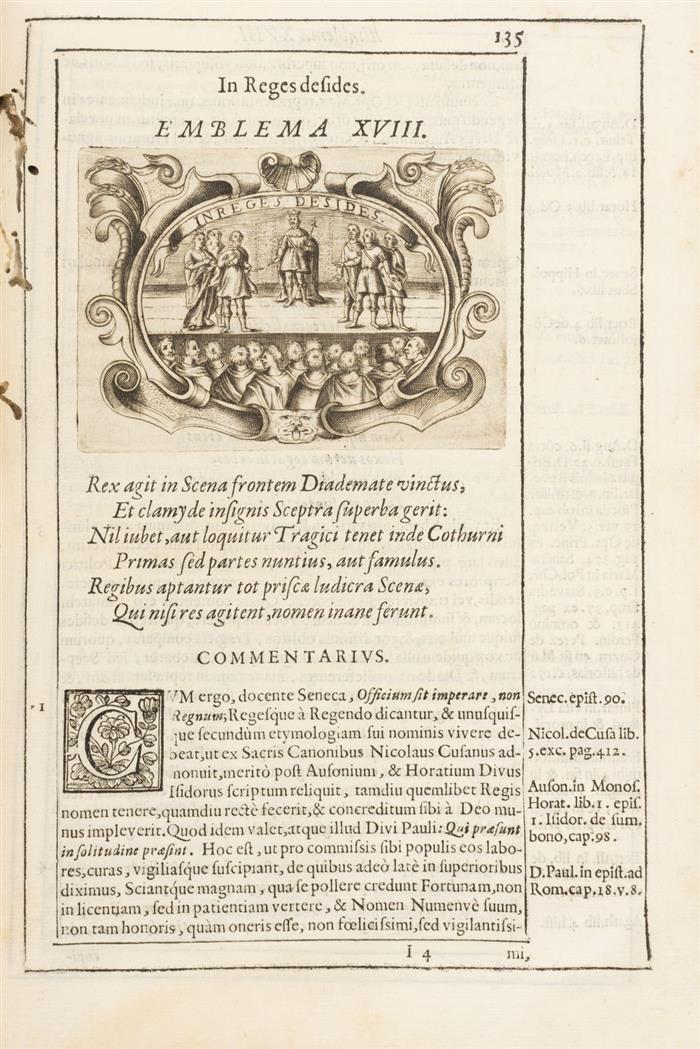 135
In Reges desides.
EMBLEMA XVIII.
IN REGES DESIDES.
Rex agit in Scena frontem Diademate vinctus,
Et clamyde insignis Sceptra superba gerit:
Nil iubet, aut loquitur Tragici tenet inde Cothurni
Primas sed partes nuntius, aut famulus.
Regibus aptantur tot priscæ ludicra Scenæ,
Qui nisi res agitent, nomen inane ferunt.
COMMENTARIVS.
1
CVM ergo, docente Seneca, Officium sit imperare, non
Regnum; Regesque à Regendo dicantur, & unusquis-
que secundùm etymologiam sui nominis vivere de-
beat, ut ex Sacris Canonibus Nicolaus Cusanus ad-
nonuit, meritò post Ausonium, & Horatium Divus
Isidorus scriptum reliquit, tamdiu quemlibet Regis
nomen tenere, quamdiu rectè fecerit, & concreditum sibi à Deo mu-
nus impleverit. Quod idem valet, atque illud Divi Pauli: Qui præsunt
in solitudine præsint. Hoc est, ut pro commissis sibi populis eos labo-
res, curas, vigiliasque suscipiant, de quibus adeò latè in superioribus
diximus, Sciantque magnam, qua se pollere credunt Fortunam, non
in licentiam, sed in patientiam vertere, & Nomen Numenvè suum,
non tam honoris, quàm oneris esse, non fœlicissimi, sed vigilantissi-
Senec. epist. 90.
Nicol. de Cusa lib.
5. exc. pag. 412.
Auson. in Monos.
Horat. lib. 1. epis.
1. Isidor. de sum.
bono, cap. 98.
D. Paul. in epist. ad
Rom. cap. 18. v. 8.
I 4
mi,